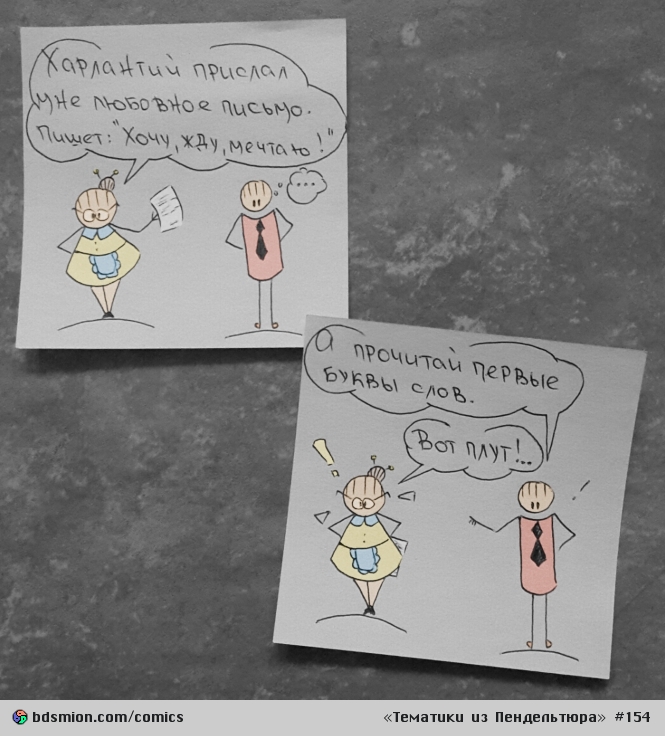 Харлантий прислал
мне любовное письмо.
Пишет: "Хочу, жду, мечтаю!"
...
А прочитай первые
буквы слов.
Вот плут!..
bdsmion.com/comics
«Тематики из Пендельтюра» #154